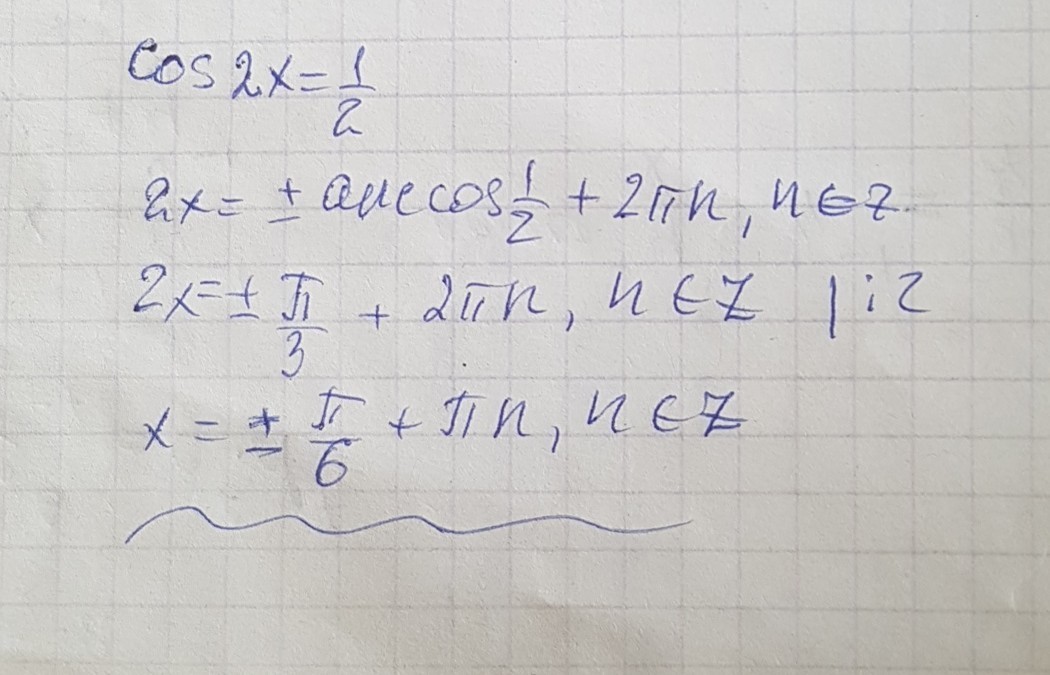 cos 2x = 1/2
2x = ± arccos 1/2 + 2πn, n ∈ z.
2x = ± π/3 + 2πn, n ∈ Z | : 2
x = ± π/6 + πn, n ∈ Z